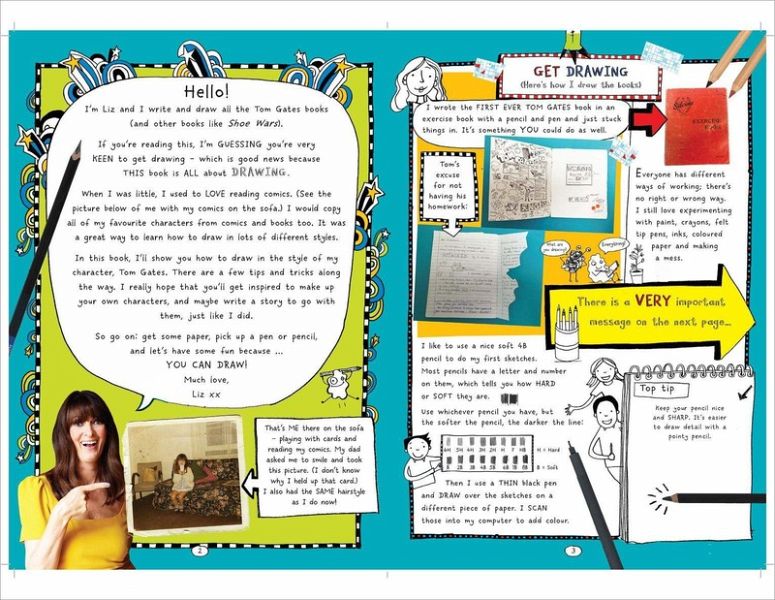 Hello!
I'm Liz and I write and draw all the Tom Gates books
(and other books like Shoe Wars).
If you're reading this, I'm GUESSING you're very
KEEN to get drawing – which is good news because
THIS book is ALL about DRAWING.
When I was little, I used to LOVE reading comics. (See the
picture below of me with my comics on the sofa.) I would copy
all of my favourite characters from comics and books too. It was
a great way to learn how to draw in lots of different styles.
In this book, I'll show you how to draw in the style of my
character, Tom Gates. There are a few tips and tricks along
the way. I really hope that you'll get inspired to make up
your own characters, and maybe write a story to go with
them, just like I did.
So go on: get some paper, pick up a pen or pencil,
and let's have some fun because ...
YOU CAN DRAW!
Much love,
Liz xx
That's ME there on the sofa
– playing with cards and
reading my comics. My dad
asked me to smile and took
this picture. (I don't know
why I held up that card.)
I also had the SAME hairstyle
as I do now!
2
GET DRAWING
(Here's how I draw the books)
I wrote the FIRST EVER TOM GATES book in an
exercise book with a pencil and pen and just stuck
things in. It's something YOU could do as well.
Silvine
EXERCISE
BOOK
Tom's
excuse
for not
having his
homework!
Everyone has different
ways of working; there's
no right or wrong way.
I still love experimenting
with paint, crayons, felt
tip pens, inks, coloured
paper and making
a mess.
What are
you drawing?
Everything!
There is a VERY important
message on the next page...
I like to use a nice soft 4B
pencil to do my first sketches.
Most pencils have a letter and number
on them, which tells you how HARD
or SOFT they are.
Use whichever pencil you have, but
the softer the pencil, the darker the line!
H = Hard
B = Soft
Then I use a THIN black pen
and DRAW over the sketches on a
different piece of paper. I SCAN
those into my computer to add colour.
Top tip
Keep your pencil nice
and SHARP. It's easier
to draw detail with a
pointy pencil.
3